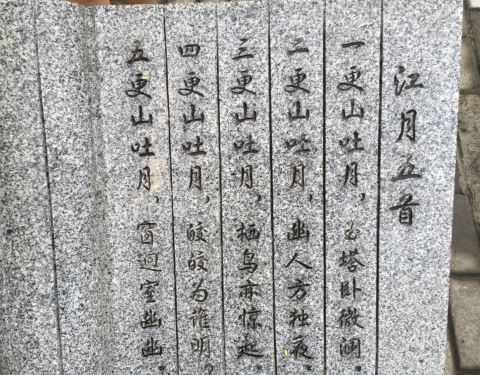 江月五首
一更山吐月，玉塔卧微澜。
二更山吐月，幽人方独夜。
三更山吐月，栖鸟亦惊起。
四更山吐月，皎皎为谁明？
五更山吐月，窗迥室幽幽。